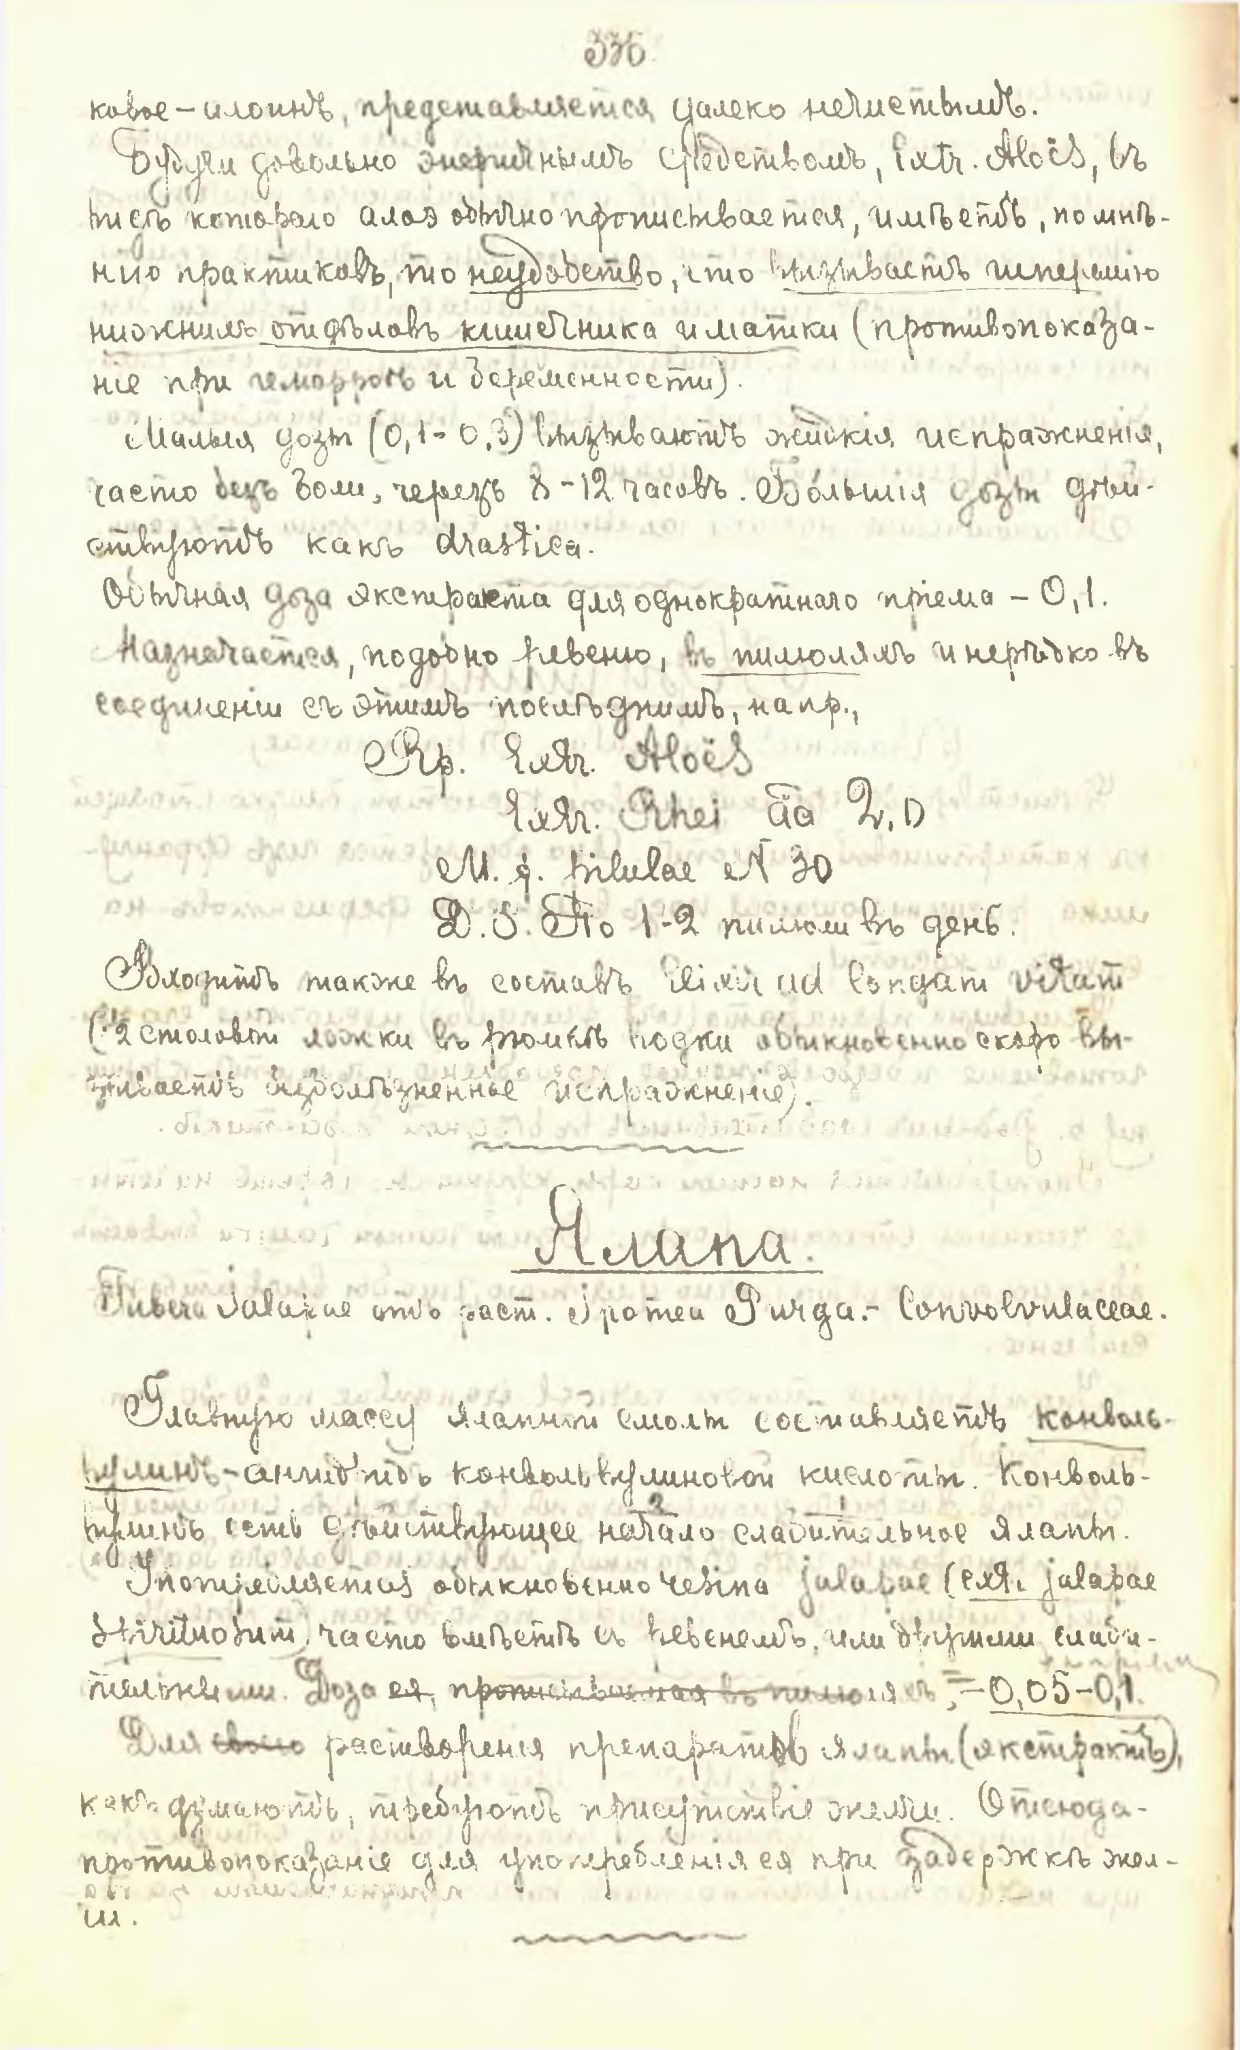 336
ковое – алоинъ, представляется далеко нечистымъ.
Будучи довольно энергичнымъ средствомъ, Extr. Aloёs, въ
видѣ котораго алоэ обычно прописывается, имѣетъ, по мнѣ-
нию практиковъ, то неудобство, что вызываетъ гиперемію
нижнихъ отдѣловъ кишечника и матки (противопоказа-
ніе при гемарроѣ и беременности).
Малыя дозы (0,1 - 0,3) вызываютъ жидкія испражненія,
часто безъ боли, черезъ 8 - 12 часовъ. Бо́льшія дозы дѣй-
ствуютъ какъ drastica.
Обычная доза экстракта для однократнаго пріема – 0,1.
Назначается, подобно ревеню, въ пилюляхъ и нерѣдко въ
соединеніи съ этимъ послѣднимъ, напр.,
Rp. Extr. Aloёs
Extr. Rhei āā 2,0
M. f. pilulae N 30
D. S. По 1-2 пилюли въ день.
Входитъ также въ составъ Elixir ad longam vitam
(2 столовыя ложки въ рюмкѣ водки обыкновенно скоро вы-
зываетъ безболѣзненное испражненіе).
Ялапа.
Tubera Jalapae отъ раст. Ipomea Purga. – Convolvulaceae.
Главную массу ялапной смолы составляетъ конволь-
вулинъ – ангидритъ конвольвулиновой кислоты. Конволь-
вулинъ есть дѣйствующее начало слабительное ялапы.
Употребляется обыкновенно resina jalapae (extr. jalapae
spirituosum), часто вмѣстѣ съ ревенемъ, или другими слаби-
тельными. Доза ея, прописываемая въ пилюляхъ, – 0,05 – 0,1.
Для своего растворенія препаратовъ ялапы (экстрактъ),
какъ думаютъ, требуютъ присутствіе желчи. Отсюда -
противопоказаніе для употребленія ея при задержкѣ жел-
чи.